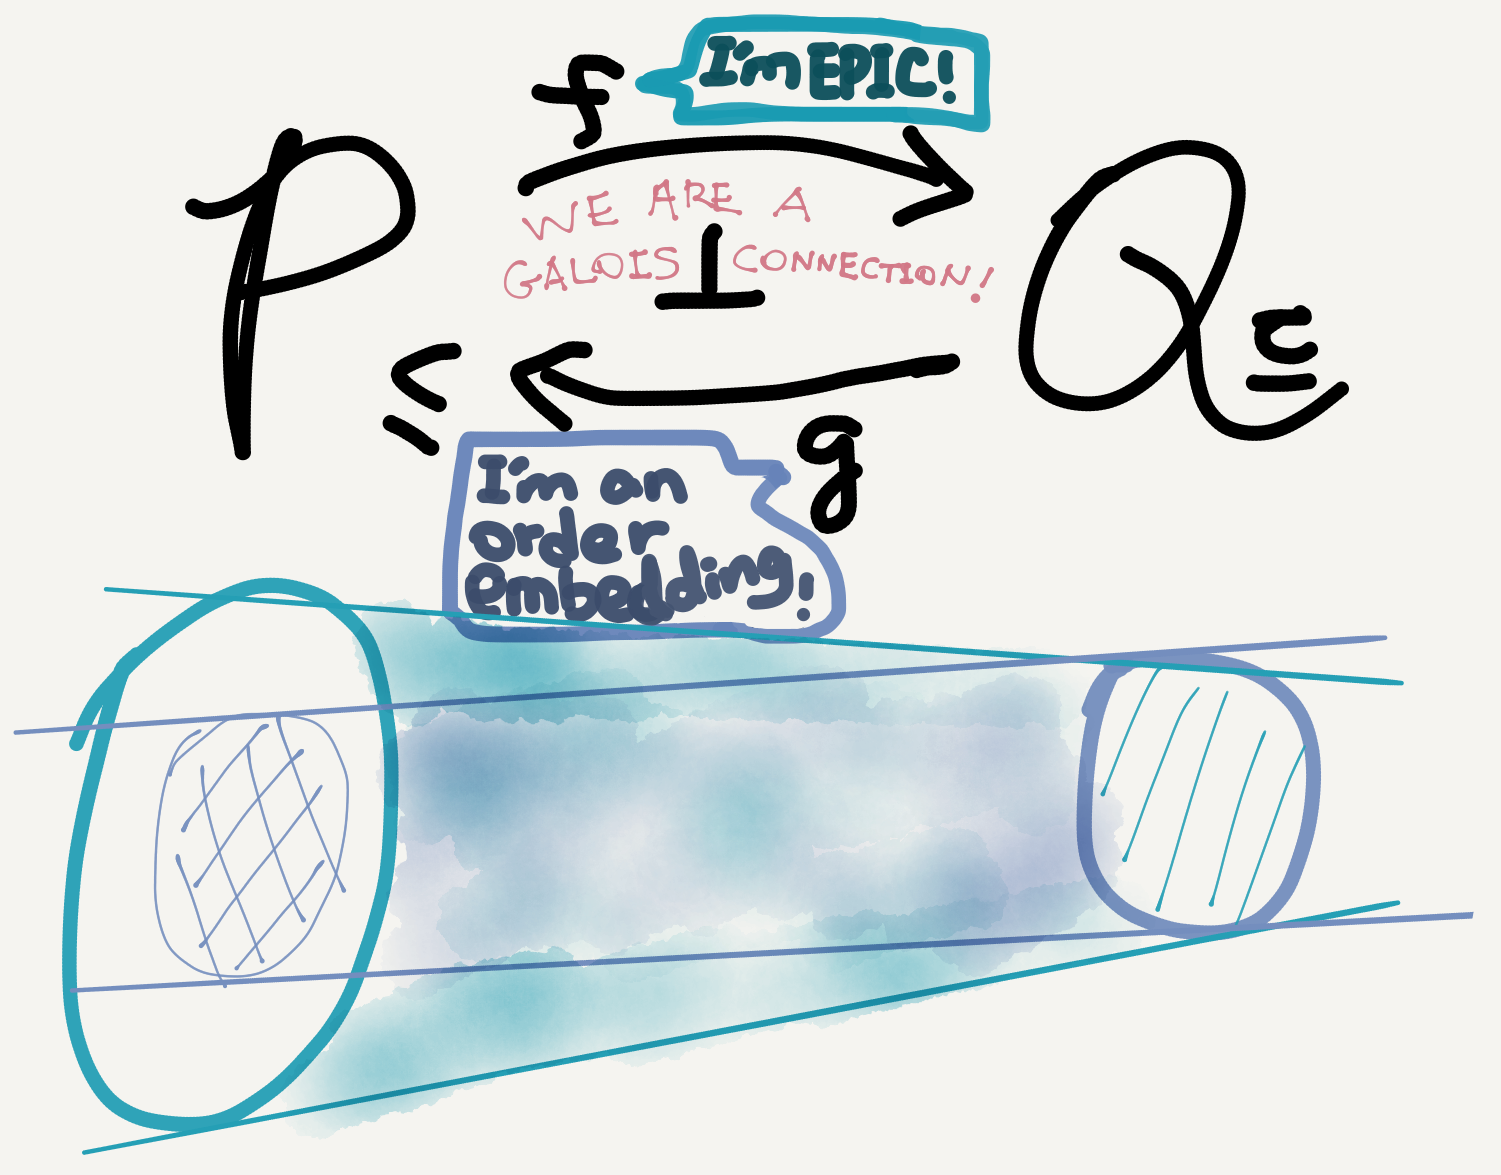 f
I'm EPIC!
P≤
WE ARE A
GALOIS CONNECTION!
⊥
Q⊑
g
I'm an
order
embedding!